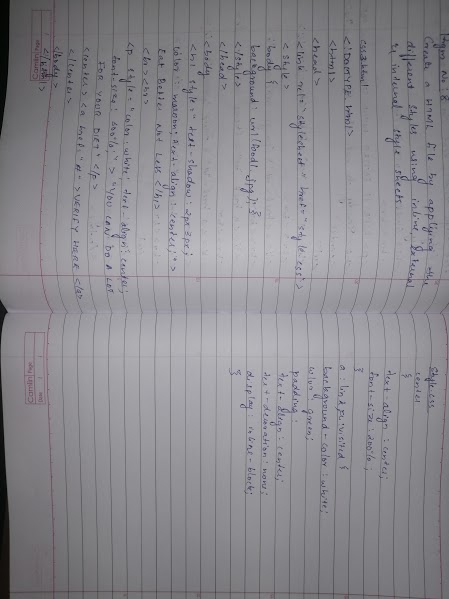 Create a HTML file by applying the
different styles using inline, external
& internal style sheets
css.html
<!DOCTYPE html>
<html>
<head>
<link rel="stylesheet" href="style.css">
<style>
body {
background: url(food1.jpg); }
</style>
</head>
<body
<h1 style="text-shadow: 2px 3px;
color: maroon; text-align: center;">
Eat Better Not Less </h1>
<br><br>
<p style="color: white; text-align: center;
font-size: 200%;"> "YOU CAN DO A LOT
FOR YOUR DIET" </p>
<center> <a href="#"> VERIFY HERE </a>
</center>
</body>
</html>
Style.css
center
{
text-align: center;
font-size: 200%;
}
a: link, a: visited {
background-color: white;
color: green;
padding:
text-align: center;
text-decoration: none;
display: inline-block;
}